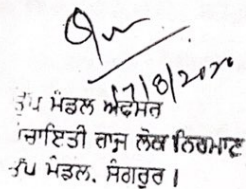 17/8/2020
ਉਪ ਮੰਡਲ ਅਫਸਰ
ਪੰਚਾਇਤੀ ਰਾਜ ਲੋਕ ਨਿਰਮਾਣ
ਉਪ ਮੰਡਲ. ਸੰਗਰੂਰ।